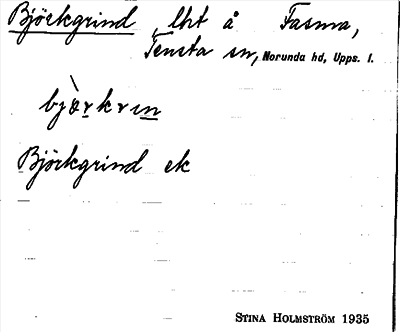 Björkgrind lht å Fasma,
Tensta sn, Norunda hd, Upps. l.
bjòrkrın
Björkgrind ek
STINA HOLMSTRÖM 1935